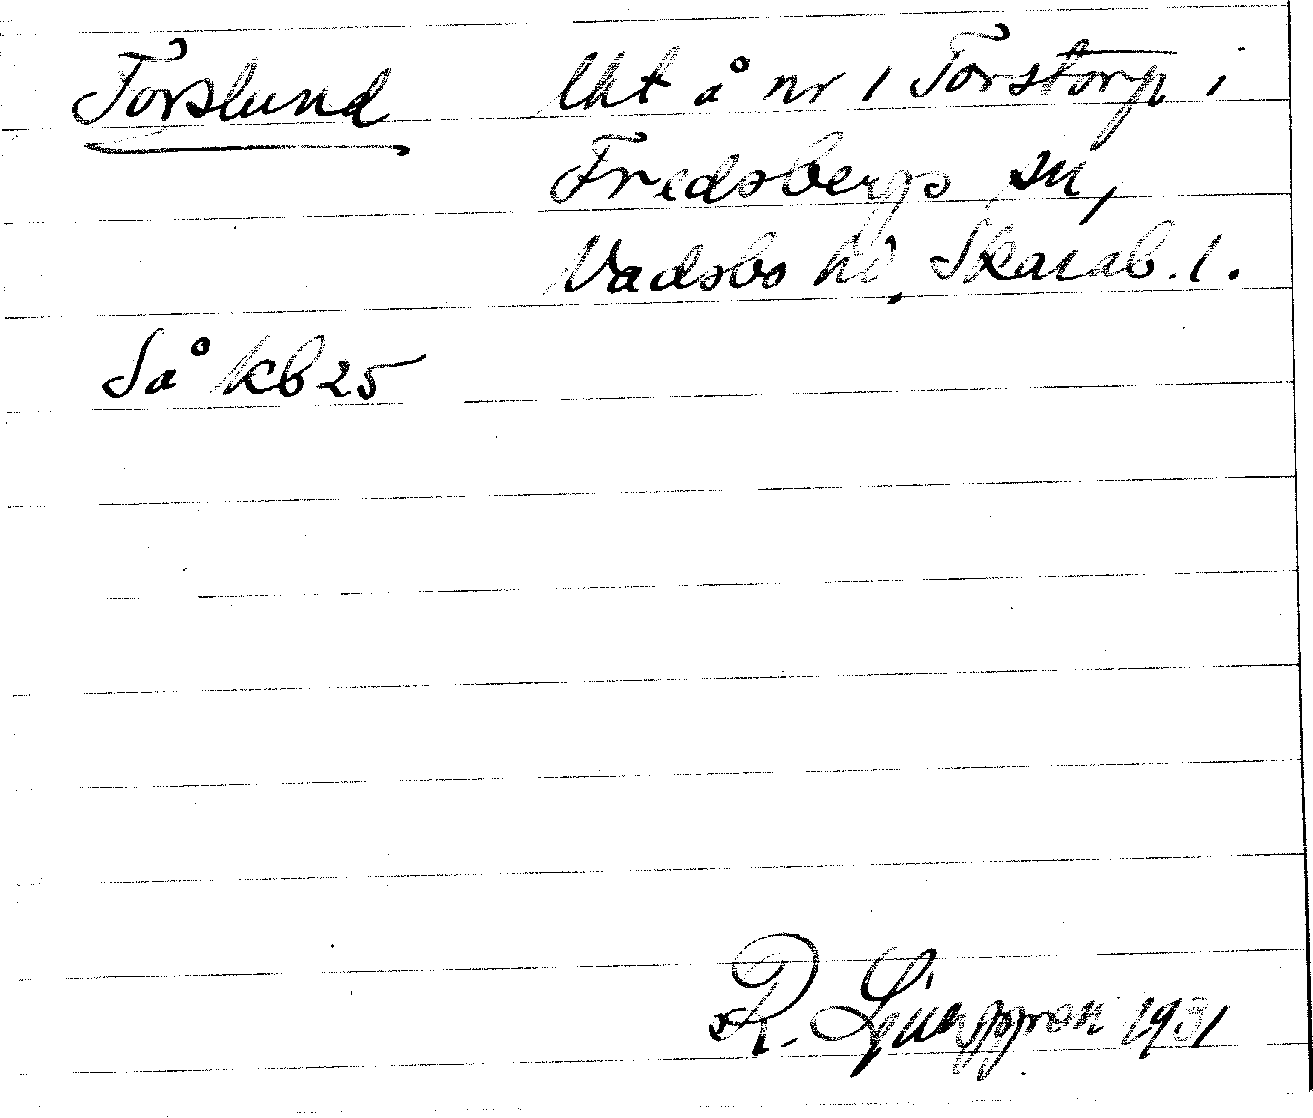 Torslund lht å nr 1 Torstorp i
Fredsbergs sn,
Vadsbo hd, Skarab. l.
Så kb 25
R. Ljunggren 1931